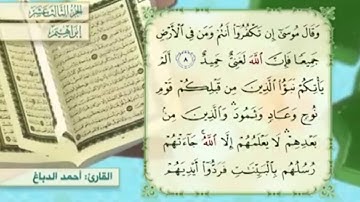 الجزء الثالث عشر
إبراهيم
وَقَالَ مُوسَىٰ إِن تَكْفُرُوا أَنتُمْ وَمَن فِي الْأَرْضِ
جَمِيعًا فَإِنَّ اللَّهَ لَغَنِيٌّ حَمِيدٌ ٨ أَلَمْ
يَأْتِكُمْ نَبَؤُا الَّذِينَ مِن قَبْلِكُمْ قَوْمِ
نُوحٍ وَعَادٍ وَثَمُودَ ۛ وَالَّذِينَ مِن
بَعْدِهِمْ ۛ لَا يَعْلَمُهُمْ إِلَّا اللَّهُ ۚ جَاءَتْهُمْ
رُسُلُهُم بِالْبَيِّنَاتِ فَرَدُّوا أَيْدِيَهُمْ
القارئ: أحمد الدباغ